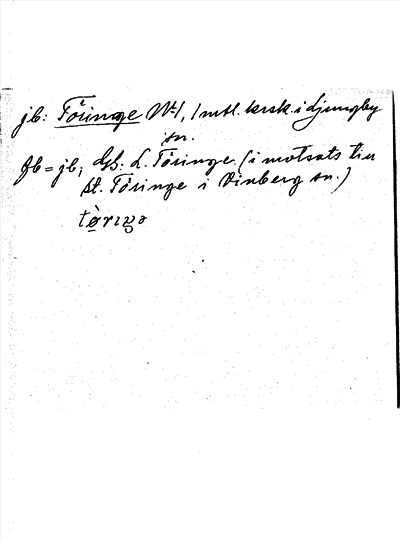 jb: Töringe No 1, 1 mtl. krsk. i Ljungby
sn.
Gb = jb; dgb: L. Töringe. (i motsats till
St. Töringe i Vinberg sn.)